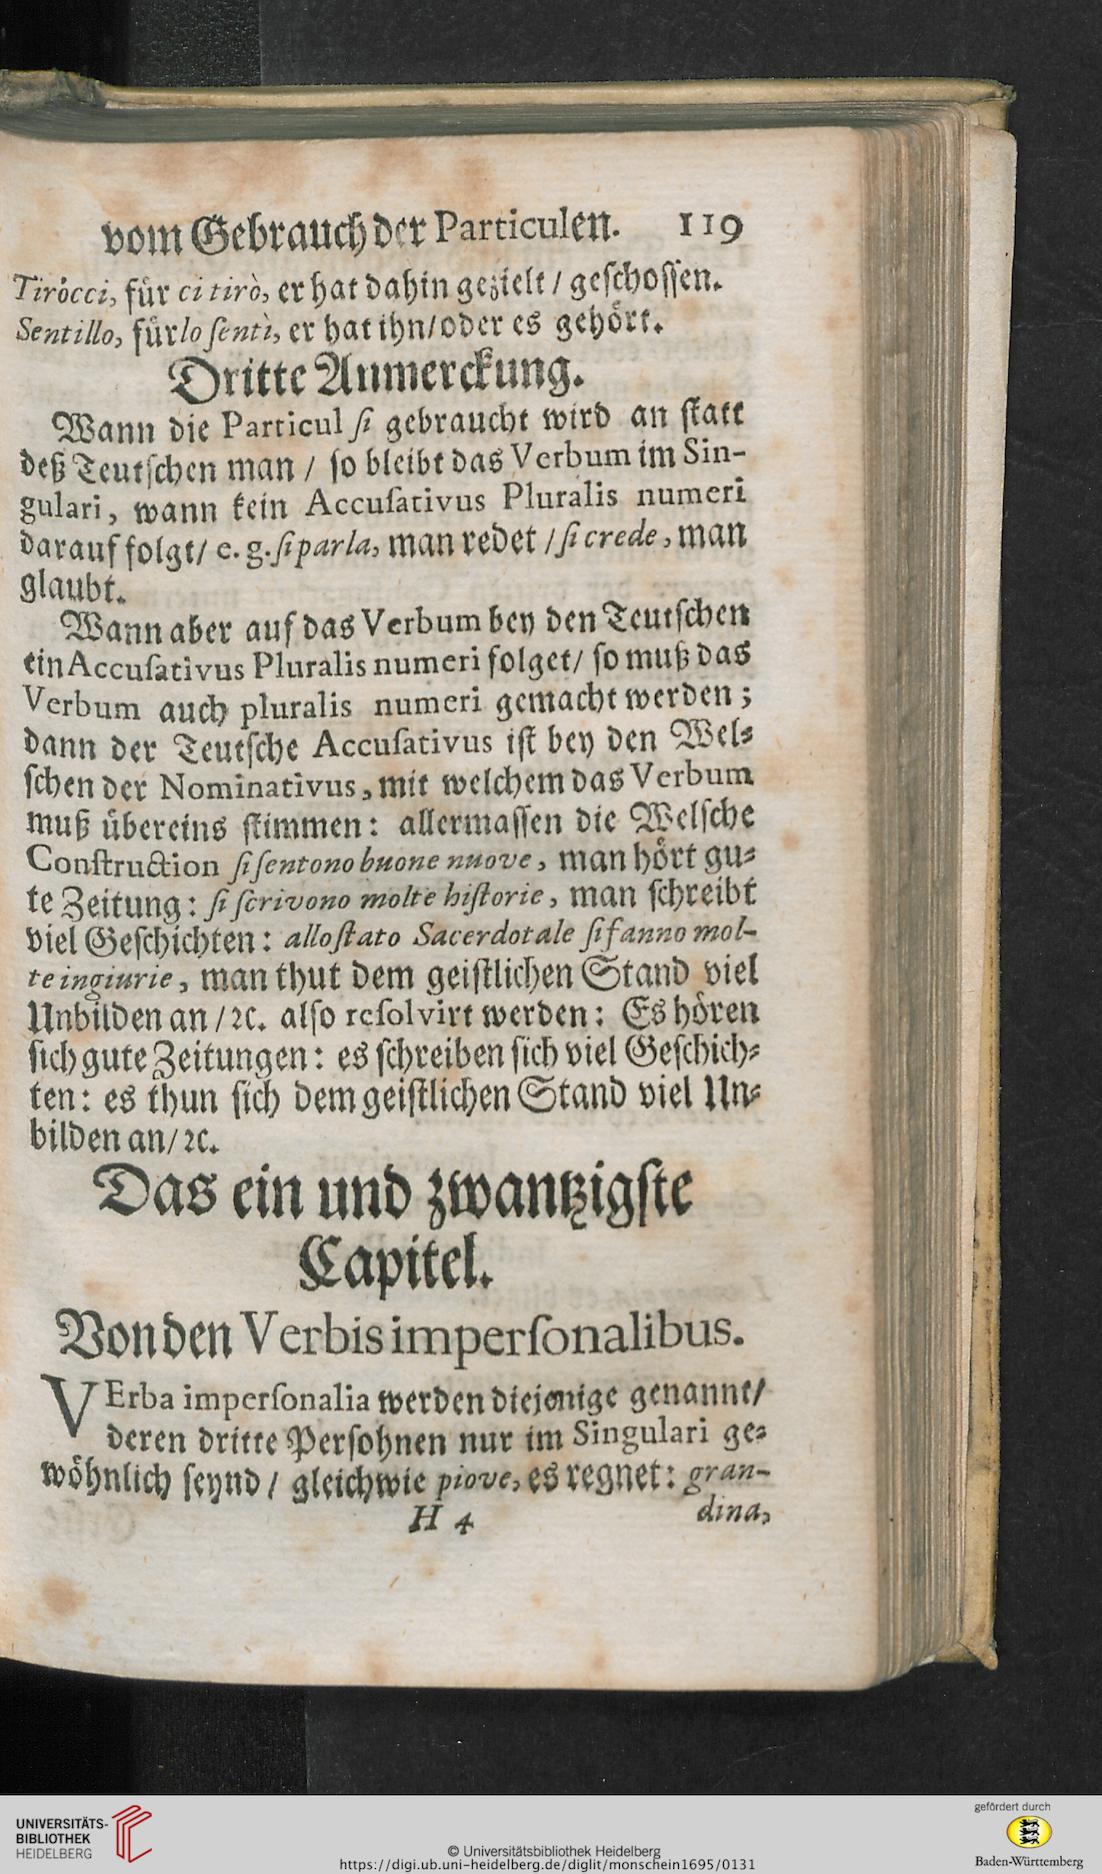 vom Gebrauch der Particulen. 119
Tiròcci, für ci tirò, er hat dahin gezielt / geschossen.
Sentillo, für lo sentì, er hat ihn/oder es gehört.
Dritte Anmerckung.
Wann die Particul si gebraucht wird an statt
deß Teutschen man / so bleibt das Verbum im Sin-
gulari, wann kein Accusativus Pluralis numeri
darauf folgt/ e. g. si parla, man redet / si crede, man
glaubt.
Wann aber auf das Verbum bey den Teutschen
ein Accusativus Pluralis numeri folget/ so muß das
Verbum auch pluralis numeri gemacht werden;
dann der Teutsche Accusativus ist bey den Wel-
schen der Nominativus, mit welchem das Verbum
muß übereins stimmen: allermassen die Welsche
Construction si sentono buone nuove, man hört gu-
te Zeitung: si scrivono molte historie, man schreibt
viel Geschichten: allo stato Sacerdotale si fanno mol-
te ingiurie, man thut dem geistlichen Stand viel
Unbilden an / ꝛc. also resolvirt werden: Es hören
sich gute Zeitungen: es schreiben sich viel Geschich-
ten: es thun sich dem geistlichen Stand viel Un-
bilden an/ ꝛc.
Das ein und zwantzigste
Capitel.
Von den Verbis impersonalibus.
VErba impersonalia werden diejenige genannt/
deren dritte Persohnen nur im Singulari ge-
wöhnlich seynd / gleichwie piove, es regnet: gran-
H 4 dina,
UNIVERSITÄTS-
BIBLIOTHEK
HEIDELBERG
© Universitätsbibliothek Heidelberg
https://digi.ub.uni-heidelberg.de/diglit/monschein1695/0131
gefördert durch
Baden-Württemberg